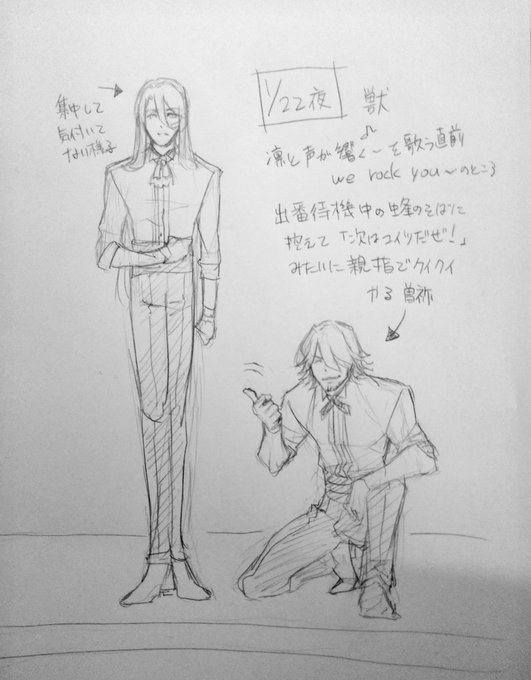 集中して
気付いて
ない様子
1/22夜 獣
♪
凛と声が響く〜を歌う直前
we rock you〜のところ
出番待機中の蜂のそばに
控えて「次はコイツだぜ！」
みたいに親指でクイクイ
やる曽祢